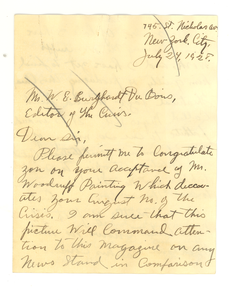 795 St. Nicholas Ave
New York City,
July 24, 1928.
Mr. W E Burghardt Du Bois,
Editor of The Crisis.
Dear Sir,
Please permit me to Congratulate
you on your Acceptance of Mr.
Woodruff Painting Which decor-
ates your August No. of the
Crisis. I am sure that this
picture Will Command atten-
tion to this Magazine on any
News Stand in Comparison